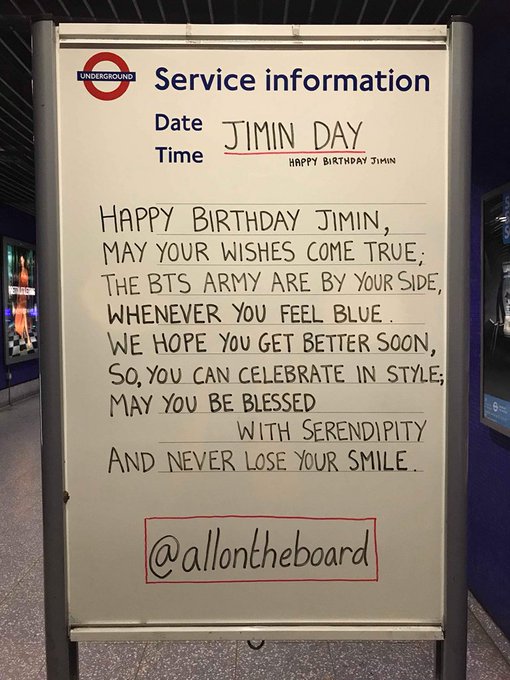 UNDERGROUND
Service information
Date
JIMIN DAY
Time
HAPPY BIRTHDAY JIMIN
HAPPY BIRTHDAY JIMIN,
MAY YOUR WISHES COME TRUE;
THE BTS ARMY ARE BY YOUR SIDE,
WHENEVER YOU FEEL BLUE.
WE HOPE YOU GET BETTER SOON,
SO, YOU CAN CELEBRATE IN STYLE;
MAY YOU BE BLESSED
WITH SERENDIPITY
AND NEVER LOSE YOUR SMILE.
@allontheboard